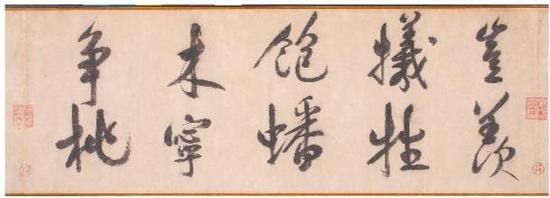 豈羨
犧牲
飽蟠
木寧
争桃